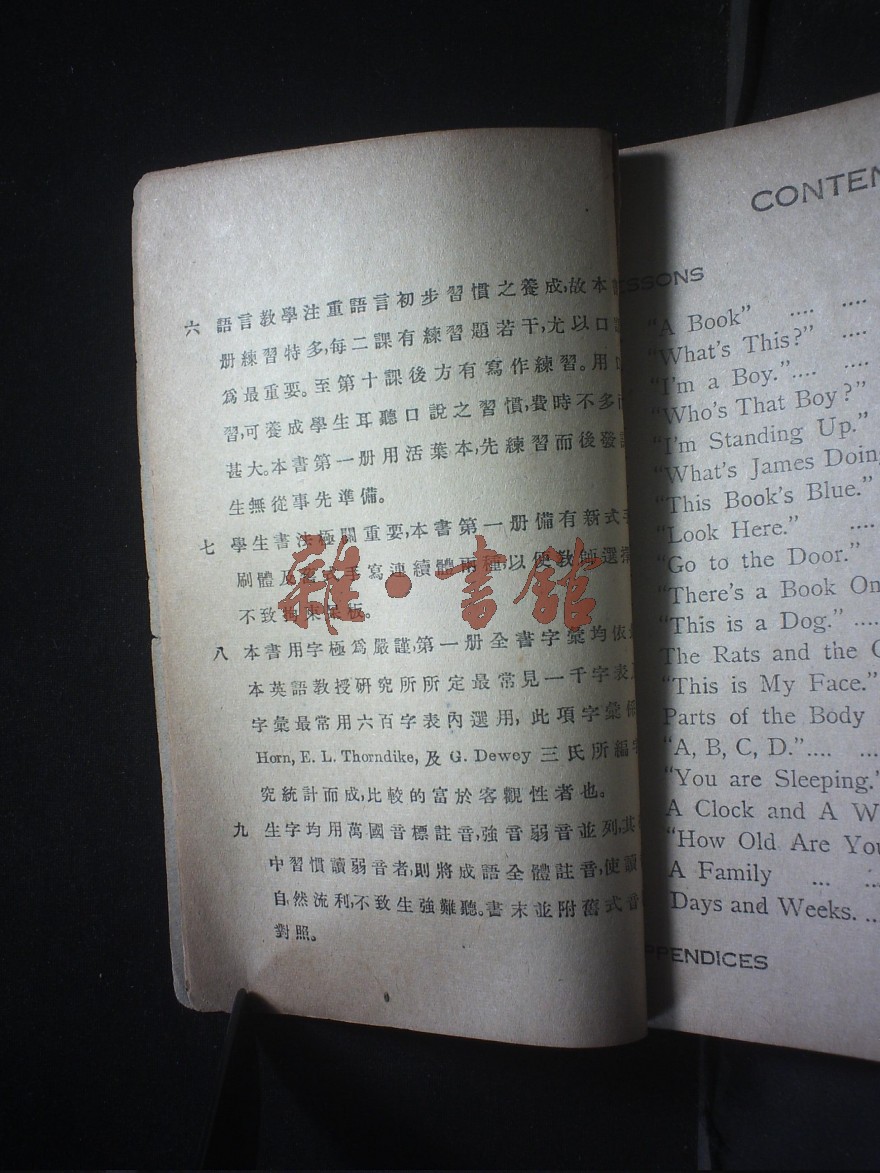 六 語言教學注重語言初步習慣之養成,故本
册練習特多,每二課有練習題若干,尤以口
爲最重要。至第十課後方有寫作練習。用
習,可養成學生耳聽口說之習慣,費時不多
甚大。本書第一册用活葉本,先練習而後發
生無從事先準備。
七 學生書法極關重要,本書第一册備有新式
刷體及 寫連續體兩種,以便教師選
不致拘束 板。
八 本書用字極爲嚴謹,第一册全書字彙均依
本英語教授硏究所所定最常見一千字表
字彙最常用六百字表內選用,此項字彙
Horn, E. L. Thorndike, 及 G. Dewey 三氏所編
究統計而成,比較的富於客觀性者也。
九 生字均用萬國音標註音,強音弱音並列,其
中習慣讀弱音者,則將成語全體註音,使讀
自然流利,不致生強難聽。書末並附舊式音
對照。
雜·書館
CONTEN
SSONS
"A Book" .... ....
"What's This?" ....
"I'm a Boy.".... ....
"Who's That Boy?"
"I'm Standing Up."
"What's James Doing
"This Book's Blue."
"Look Here." ....
"Go to the Door."
"There's a Book On
"This is a Dog." ....
The Rats and the C
"This is My Face."
Parts of the Body
"A, B, C, D.".... ...
"You are Sleeping."
A Clock and A W
"How Old Are You
A Family ... ...
Days and Weeks. ..
PPENDICES